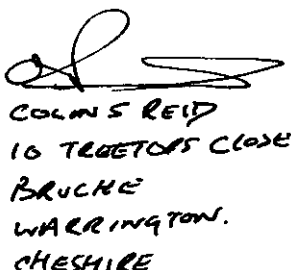 COLIN S REID
10 TREETOPS CLOSE
BRUCHE
WARRINGTON.
CHESHIRE